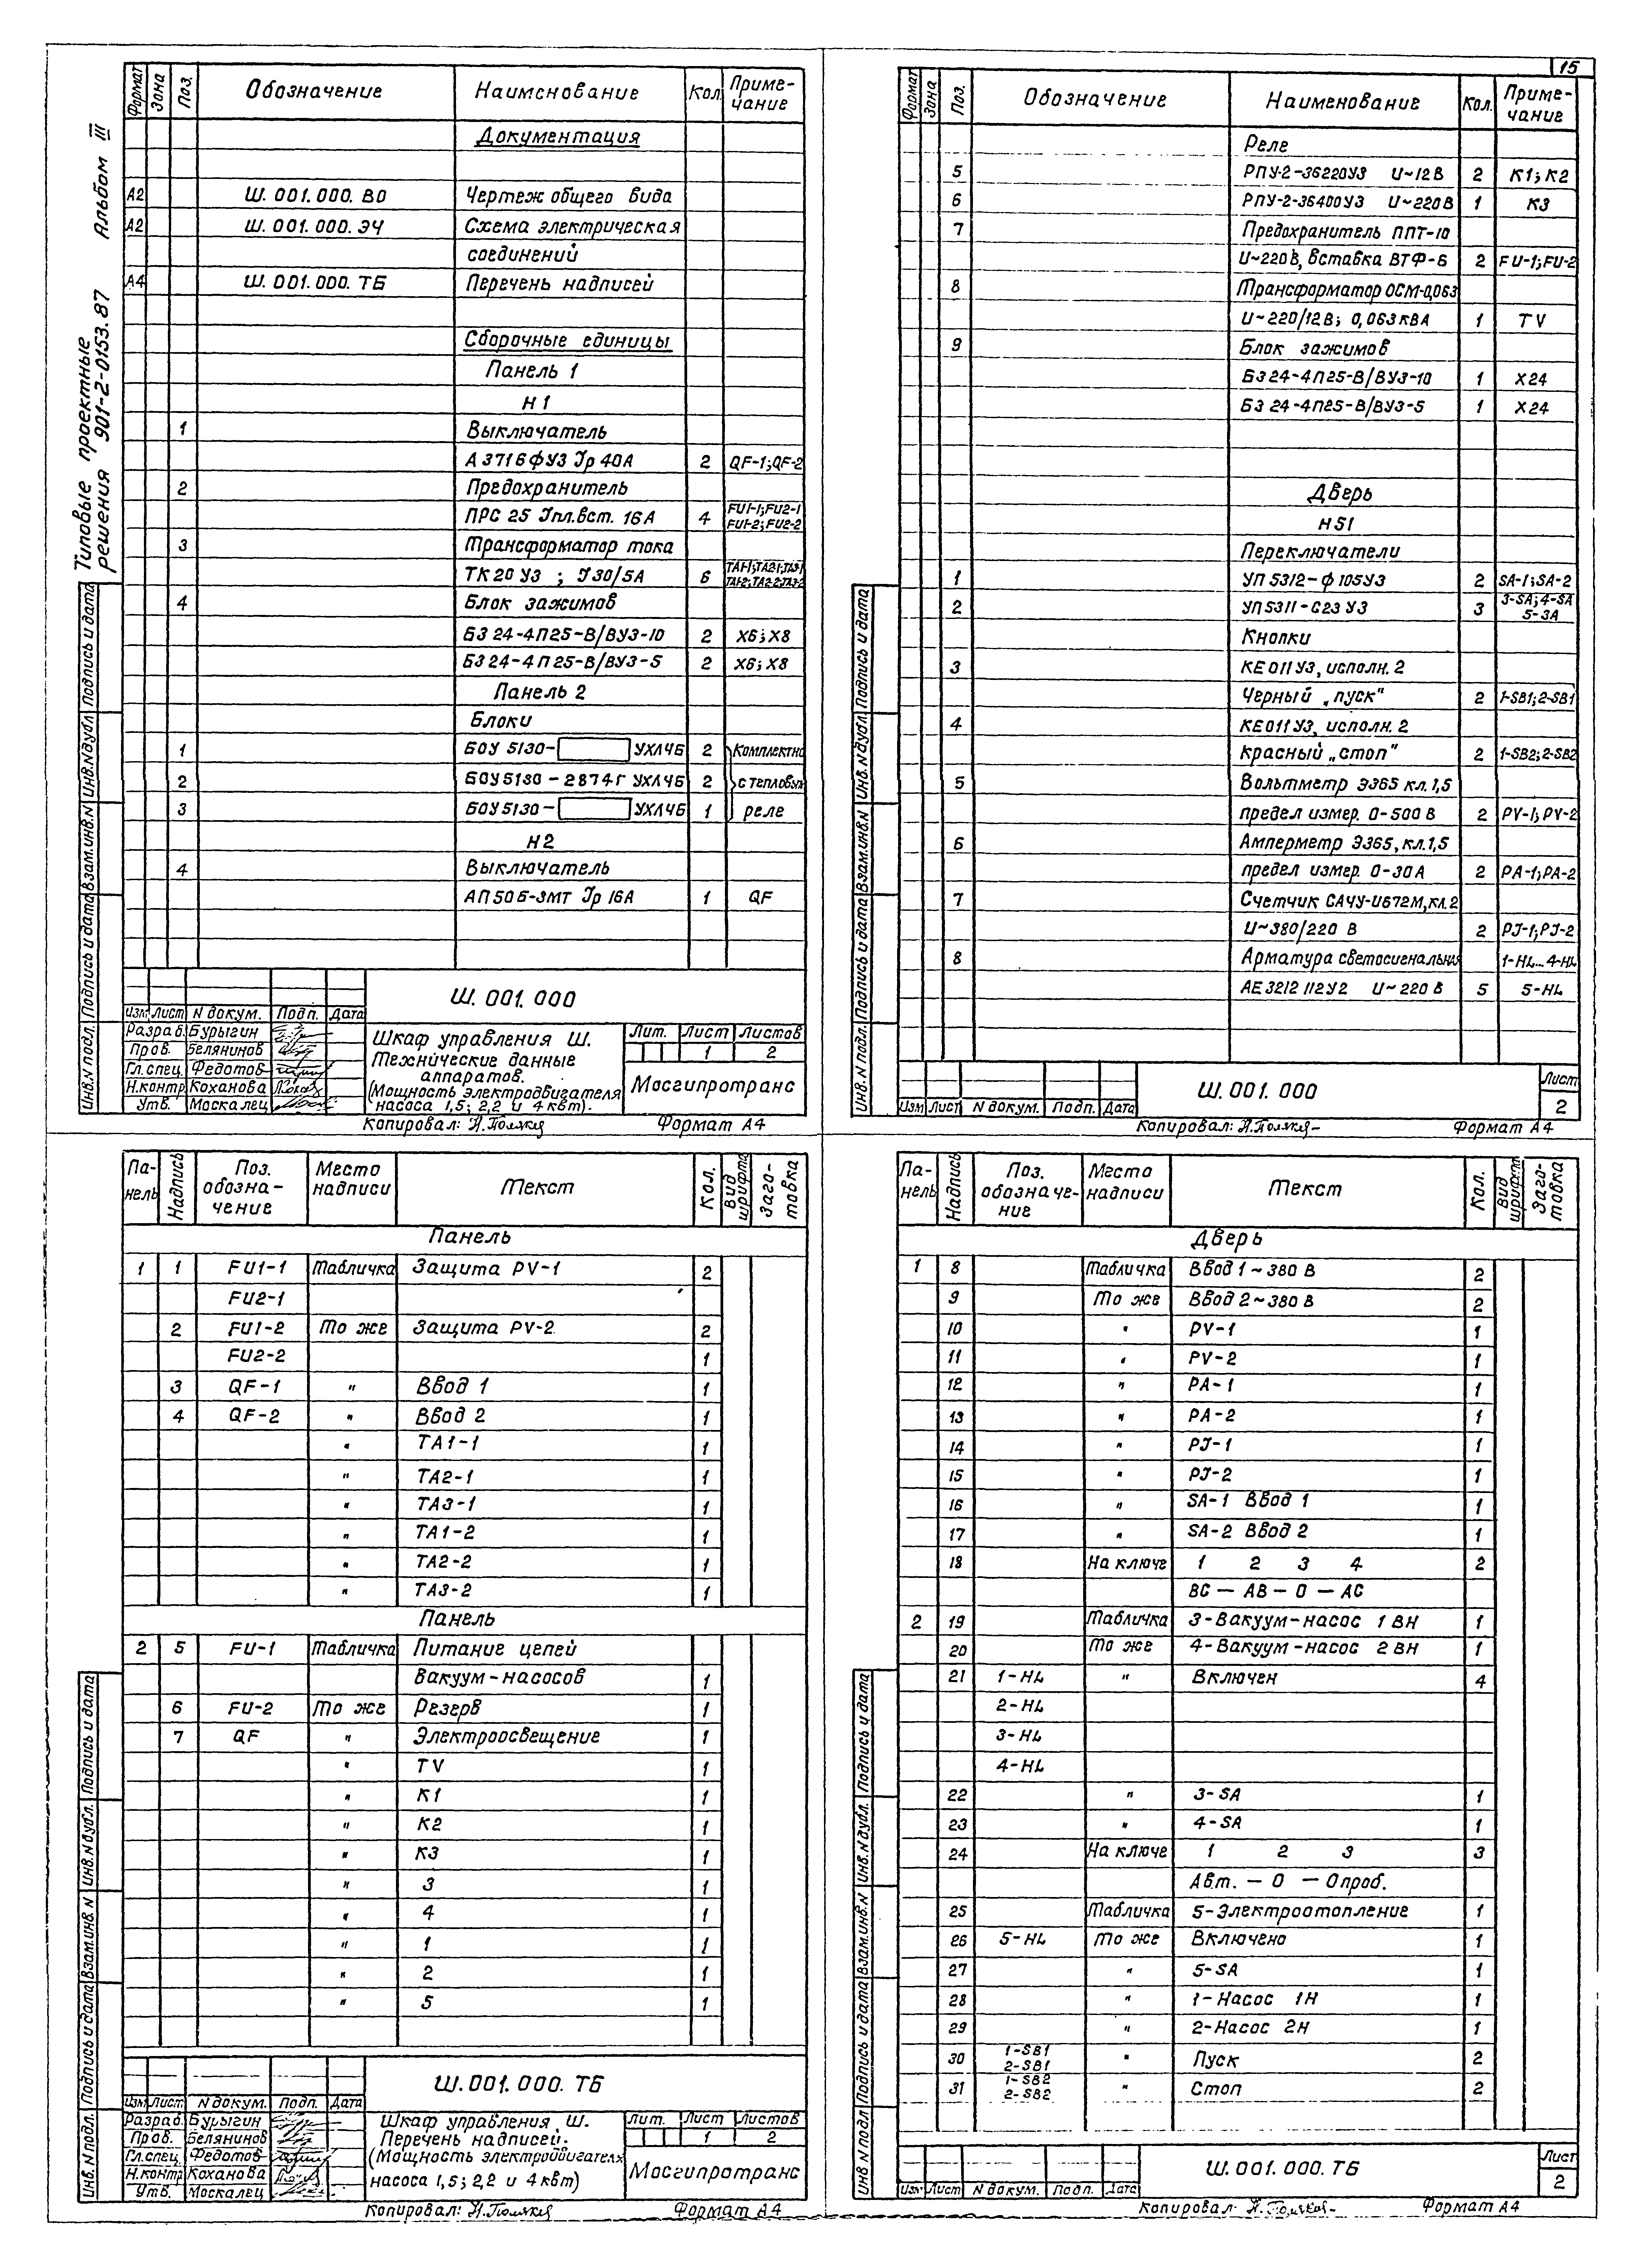 15
Типовые проектные
решения 901-2-0153.87 Альбом III
Формат Зона Поз. Обозначение Наименование Кол Приме-
чание
Документация
А2 Ш.001.000.ВО Чертеж общего вида
А2 Ш.001.000.ЭЧ Схема электрическая
соединений
А4 Ш.001.000.ТБ Перечень надписей
Сборочные единицы
Панель 1
Н1
1 Выключатель
А3716ФУ3 Iр 40А 2 QF-1;QF-2
2 Предохранитель
ПРС 25 Iпл.вст. 16А 4 FU1-1;FU2-1
FU1-2;FU2-2
3 Трансформатор тока
ТК20 У3 ; У30/5А 6 TA1-1;TA2-1;TA3-1
TA1-2;TA2-2;TA3-2
4 Блок зажимов
БЗ 24-4П25-В/ВУ3-10 2 Х6;Х8
БЗ24-4П25-В/ВУ3-5 2 Х6;Х8
Панель 2
Блоки
1 БОУ 5130- УХЛ4Б 2 Комплектно
2 БОУ5130-2874Г УХЛ4Б 2 с тепловым
3 БОУ5130- УХЛ4Б 1 реле
Н2
4 Выключатель
АП50Б-3МТ Iр 16А 1 QF
Ш.001.000
Изм Лист N докум. Подп. Дата
Разраб. Бурыгин
Пров. Белянинов
Гл.спец. Федотов
Н.контр Коханова
Утв. Москалец
Шкаф управления Ш.
Технические данные
аппаратов.
(Мощность электродвигателя
насоса 1,5; 2,2 и 4квт).
Лит. Лист Листов
1 2
Мосгипротранс
Копировал: Формат А4
Инв.N подл. Подпись и дата Взам.инв.N Инв.N дубл. Подпись и дата
Формат Зона Поз. Обозначение Наименование Кол. Приме-
чание
Реле
5 РПУ-2-36220У3 U~12В 2 К1;К2
6 РПУ-2-36400У3 U~220В 1 К3
7 Предохранитель ППТ-10
U~220В, вставка ВТФ-6 2 FU-1;FU-2
8 Трансформатор ОСМ-0,063
U~220/12В; 0,063кВА 1 TV
9 Блок зажимов
БЗ24-4П25-В/ВУ3-10 1 Х24
БЗ 24-4П25-В/ВУ3-5 1 Х24
Дверь
Н51
Переключатели
1 УП5312-Ф105У3 2 SA-1;SA-2
2 УП5311-С23 У3 3 3-SA;4-SA
5-SA
Кнопки
3 КЕ011У3, исполн. 2
Черный „пуск" 2 1-SB1;2-SB1
4 КЕ011У3, исполн. 2
красный „стоп" 2 1-SB2;2-SB2
5 Вольтметр Э365 кл.1,5
предел измер. 0-500 В 2 PV-1;PV-2
6 Амперметр Э365,кл.1,5
предел измер. 0-30А 2 PA-1;PA-2
7 Счетчик СА4У-И672М,кл.2
U~380/220 В 2 PJ-1;PJ-2
8 Арматура светосигнальная 1-HL...4-HL
АЕ3212112У2 U~220 В 5 5-HL
Изм Лист N докум. Подп. Дата
Ш.001.000
Лист
2
Копировал: Формат А4
Инв.N подл. Подпись и дата Взам.инв.N Инв.N дубл. Подпись и дата
Па-
нель Надпись Поз.
обозна-
чение Место
надписи Текст Кол. Вид
шрифта Заго-
товка
Панель
1 1 FU1-1 Табличка Защита PV-1 2
FU2-1
2 FU1-2 То же Защита PV-2 2
FU2-2 1
3 QF-1 " Ввод 1 1
4 QF-2 " Ввод 2 1
" TA1-1 1
" TA2-1 1
" TA3-1 1
" TA1-2 1
" TA2-2 1
" TA3-2 1
Панель
2 5 FU-1 Табличка Питание цепей
вакуум-насосов 1
6 FU-2 То же Резерв 1
7 QF " Электроосвещение 1
" TV 1
" К1 1
" К2 1
" К3 1
" 3 1
" 4 1
" 1 1
" 2 1
" 5 1
Ш.001.000.ТБ
Изм Лист N докум. Подп. Дата
Разраб. Бурыгин
Пров. Белянинов
Гл.спец. Федотов
Н.контр Коханова
Утв. Москалец
Шкаф управления Ш.
Перечень надписей.
(Мощность электродвигателя
насоса 1,5; 2,2 и 4квт)
Лит. Лист Листов
1 2
Мосгипротранс
Копировал: Формат А4
Инв.N подл. Подпись и дата Взам.инв.N Инв.N дубл. Подпись и дата
Па-
нель Надпись Поз.
обозначе-
ние Место
надписи Текст Кол. Вид
шрифта Заго-
товка
Дверь
1 8 Табличка Ввод 1~380 В 2
9 То же Ввод 2~380 В 2
10 " PV-1 1
11 " PV-2 1
12 " PA-1 1
13 " PA-2 1
14 " PJ-1 1
15 " PJ-2 1
16 " SA-1 Ввод 1 1
17 " SA-2 Ввод 2 1
18 На ключе 1 2 3 4 2
ВС — АВ — 0 — АС
2 19 Табличка 3-Вакуум-насос 1ВН 1
20 То же 4-Вакуум-насос 2ВН 1
21 1-HL " Включен 4
2-HL
3-HL
4-HL
22 " 3-SA 1
23 " 4-SA 1
24 На ключе 1 2 3 3
Авт. — 0 — Опроб.
25 Табличка 5-Электроотопление 1
26 5-HL То же Включено 1
27 " 5-SA 1
28 " 1-Насос 1Н 1
29 " 2-Насос 2Н 1
30 1-SB1
2-SB1 " Пуск 2
31 1-SB2
2-SB2 " Стоп 2
Изм Лист N докум. Подп. Дата
Ш.001.000.ТБ
Лист
2
Копировал: Формат А4
Инв.N подл Подпись и дата Взам.инв.N Инв.N дубл. Подпись и дата